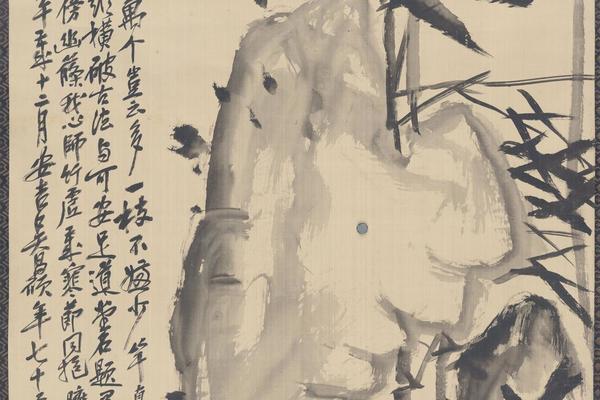 萬个豈云多一枝不嫌少竿
橫破古法與可安足道當石題
傍幽篠我心師竹虛寒節同抱
午歲十二月安吉吳昌碩年七十